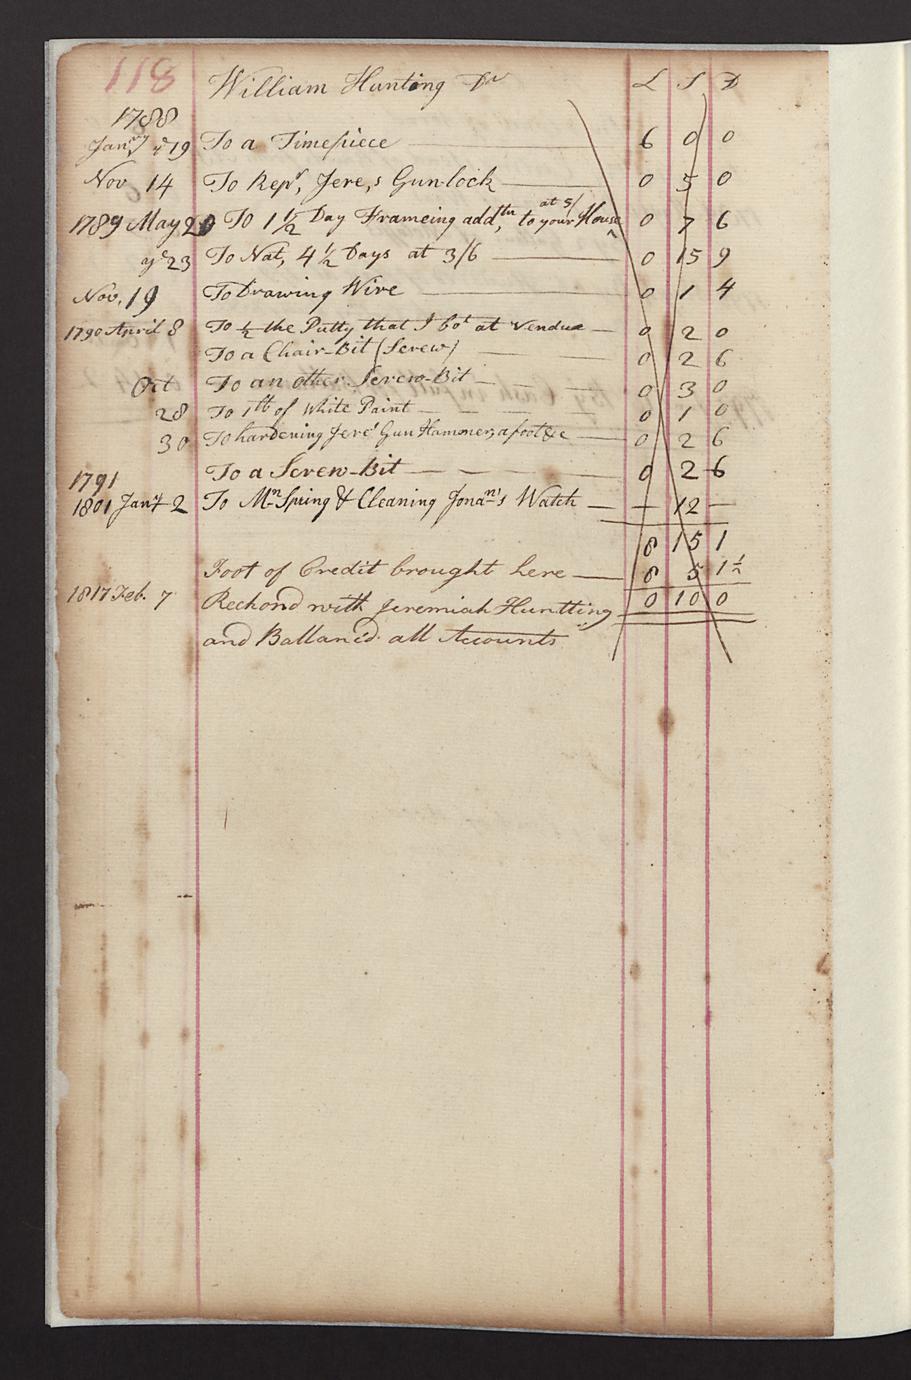 118 William Hunting Dr £ S D
1788
Janry ye 19 To a Timepiece 6 0 0
Nov 14 To Repr, Jere,s Gun-lock 0 5 0
1789 May 20 To 1 1/2 Day Frameing addtn, to your House at 5/ 0 7 6
ye 23 To Nat, 4 1/2 Days at 3/6 0 15 9
Nov. 19 To Drawing Wire 0 1 4
1790 April 8 To 1/2 the Putty that I bot at Vendue 0 2 0
To a Chair-Bit (Screw) 0 2 6
Oct To an other Screw-Bit 0 3 0
28 To 1 lb of White Paint 0 1 0
30 To hardening Jere' Gun Hammer, a foot &c 0 2 6
1791 To a Screw-Bit 0 2 6
1801 Jany 2 To Mn Spring & Cleaning Jonan's Watch — 12 —
8 15 1
Foot of Credit brought here 8 5 1 1/2
1817 Feb. 7 Reckond with Jeremiah Huntting 0 10 0
and Ballanc'd all Accounts